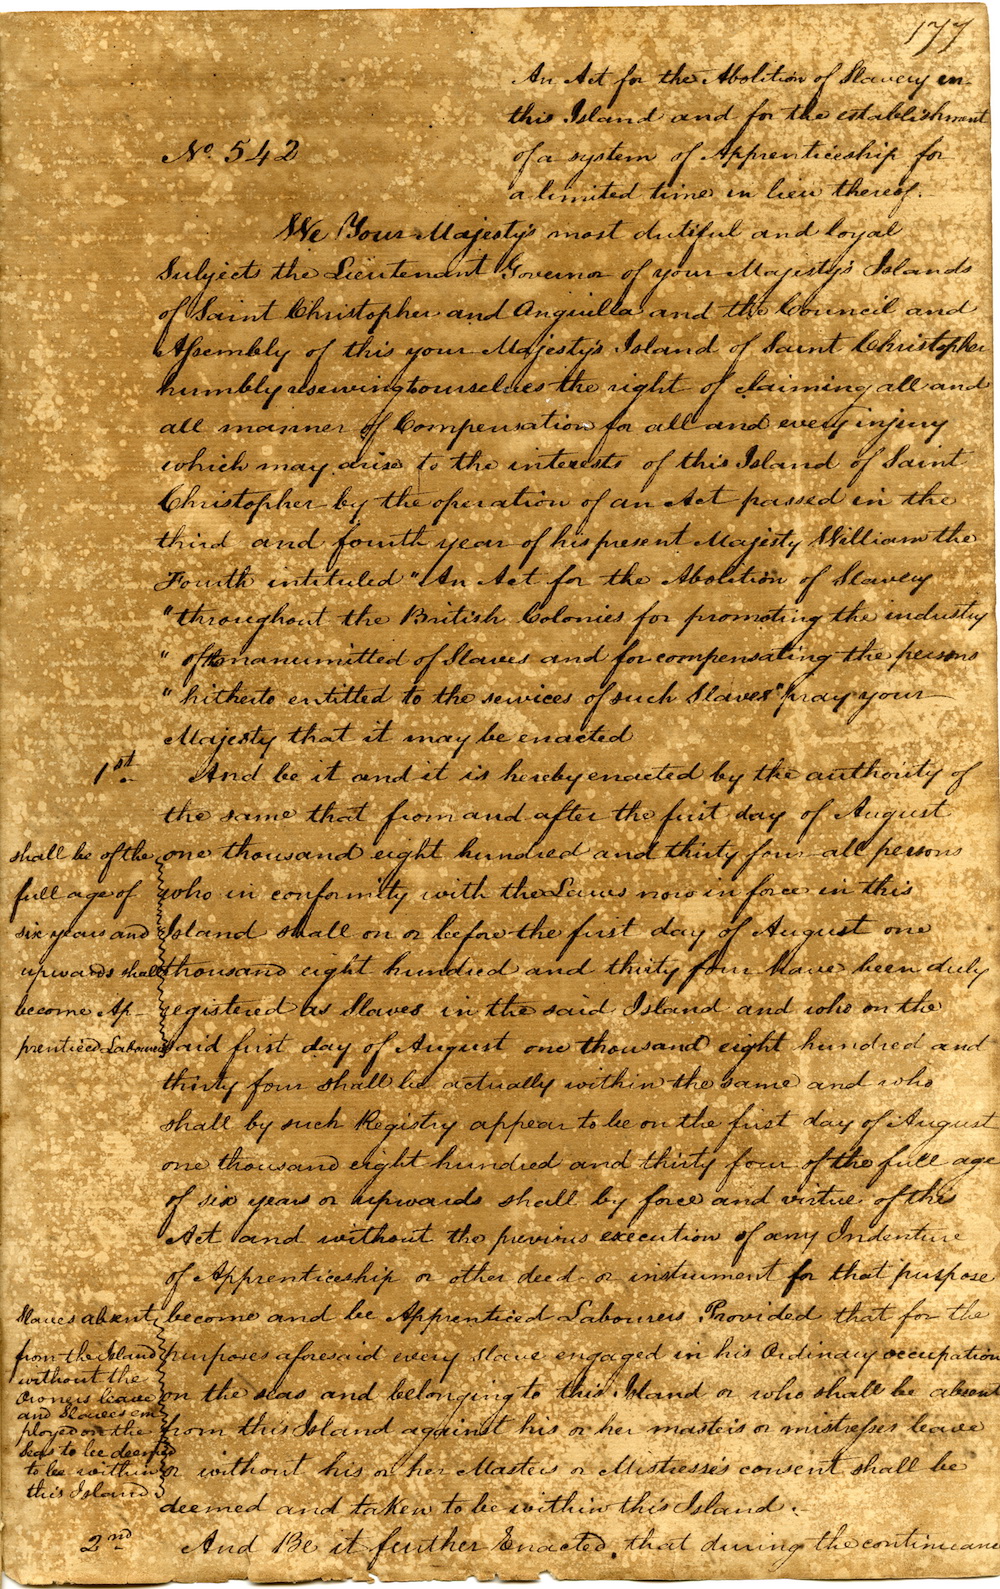 177
An Act for the Abolition of Slavery in
this Island and for the establishment
No. 542
of a system of Apprenticeship for
a limited time in lieu thereof.
We Your Majesty's most dutiful and loyal
Subjects the Lieutenant Governor of your Majesty's Islands
of Saint Christopher and Anguilla and the Council and
Assembly of this your Majesty's Island of Saint Christopher
humbly reserving to ourselves the right of claiming all and
all manner of Compensation for all and every injury
which may arise to the interests of this Island of Saint
Christopher by the operation of an Act passed in the
third and fourth year of his present Majesty William the
Fourth intituled "An Act for the Abolition of Slavery
"throughout the British Colonies for promoting the industry
" of manumitted of Slaves and for compensating the persons
"hitherto entitled to the services of such Slaves" pray your
Majesty that it may be enacted
1st And be it and it is hereby enacted by the authority of
the same that from and after the first day of August
one thousand eight hundred and thirty four all persons
who in conformity with the Laws now in force in this
Island shall on or before the first day of August one
thousand eight hundred and thirty four have been duly
registered as Slaves in the said Island and who on the
said first day of August one thousand eight hundred and
thirty four shall be actually within the same and who
shall by such Registry appear to be on the first day of August
one thousand eight hundred and thirty four of the full age
of six years or upwards shall by force and virtue of this
Act and without the previous execution of any Indenture
of Apprenticeship or other deed or instrument for that purpose
become and be Apprenticed Labourers Provided that for the
purposes aforesaid every slave engaged in his Ordinary occupation
on the seas and belonging to this Island or who shall be absent
from this Island against his or her masters or mistresses leave
or without his or her Masters or Mistresses consent shall be
deemed and taken to be within this Island.
2nd And Be it further Enacted, that during the continuance
shall be of the
full age of
six years and
upwards shall
become Ap-
prenticed Labourers
Slaves absent
from the Island
without the
Owners leave
and Slaves em
ployed on the
Seas to be deemed
to be within
this Island